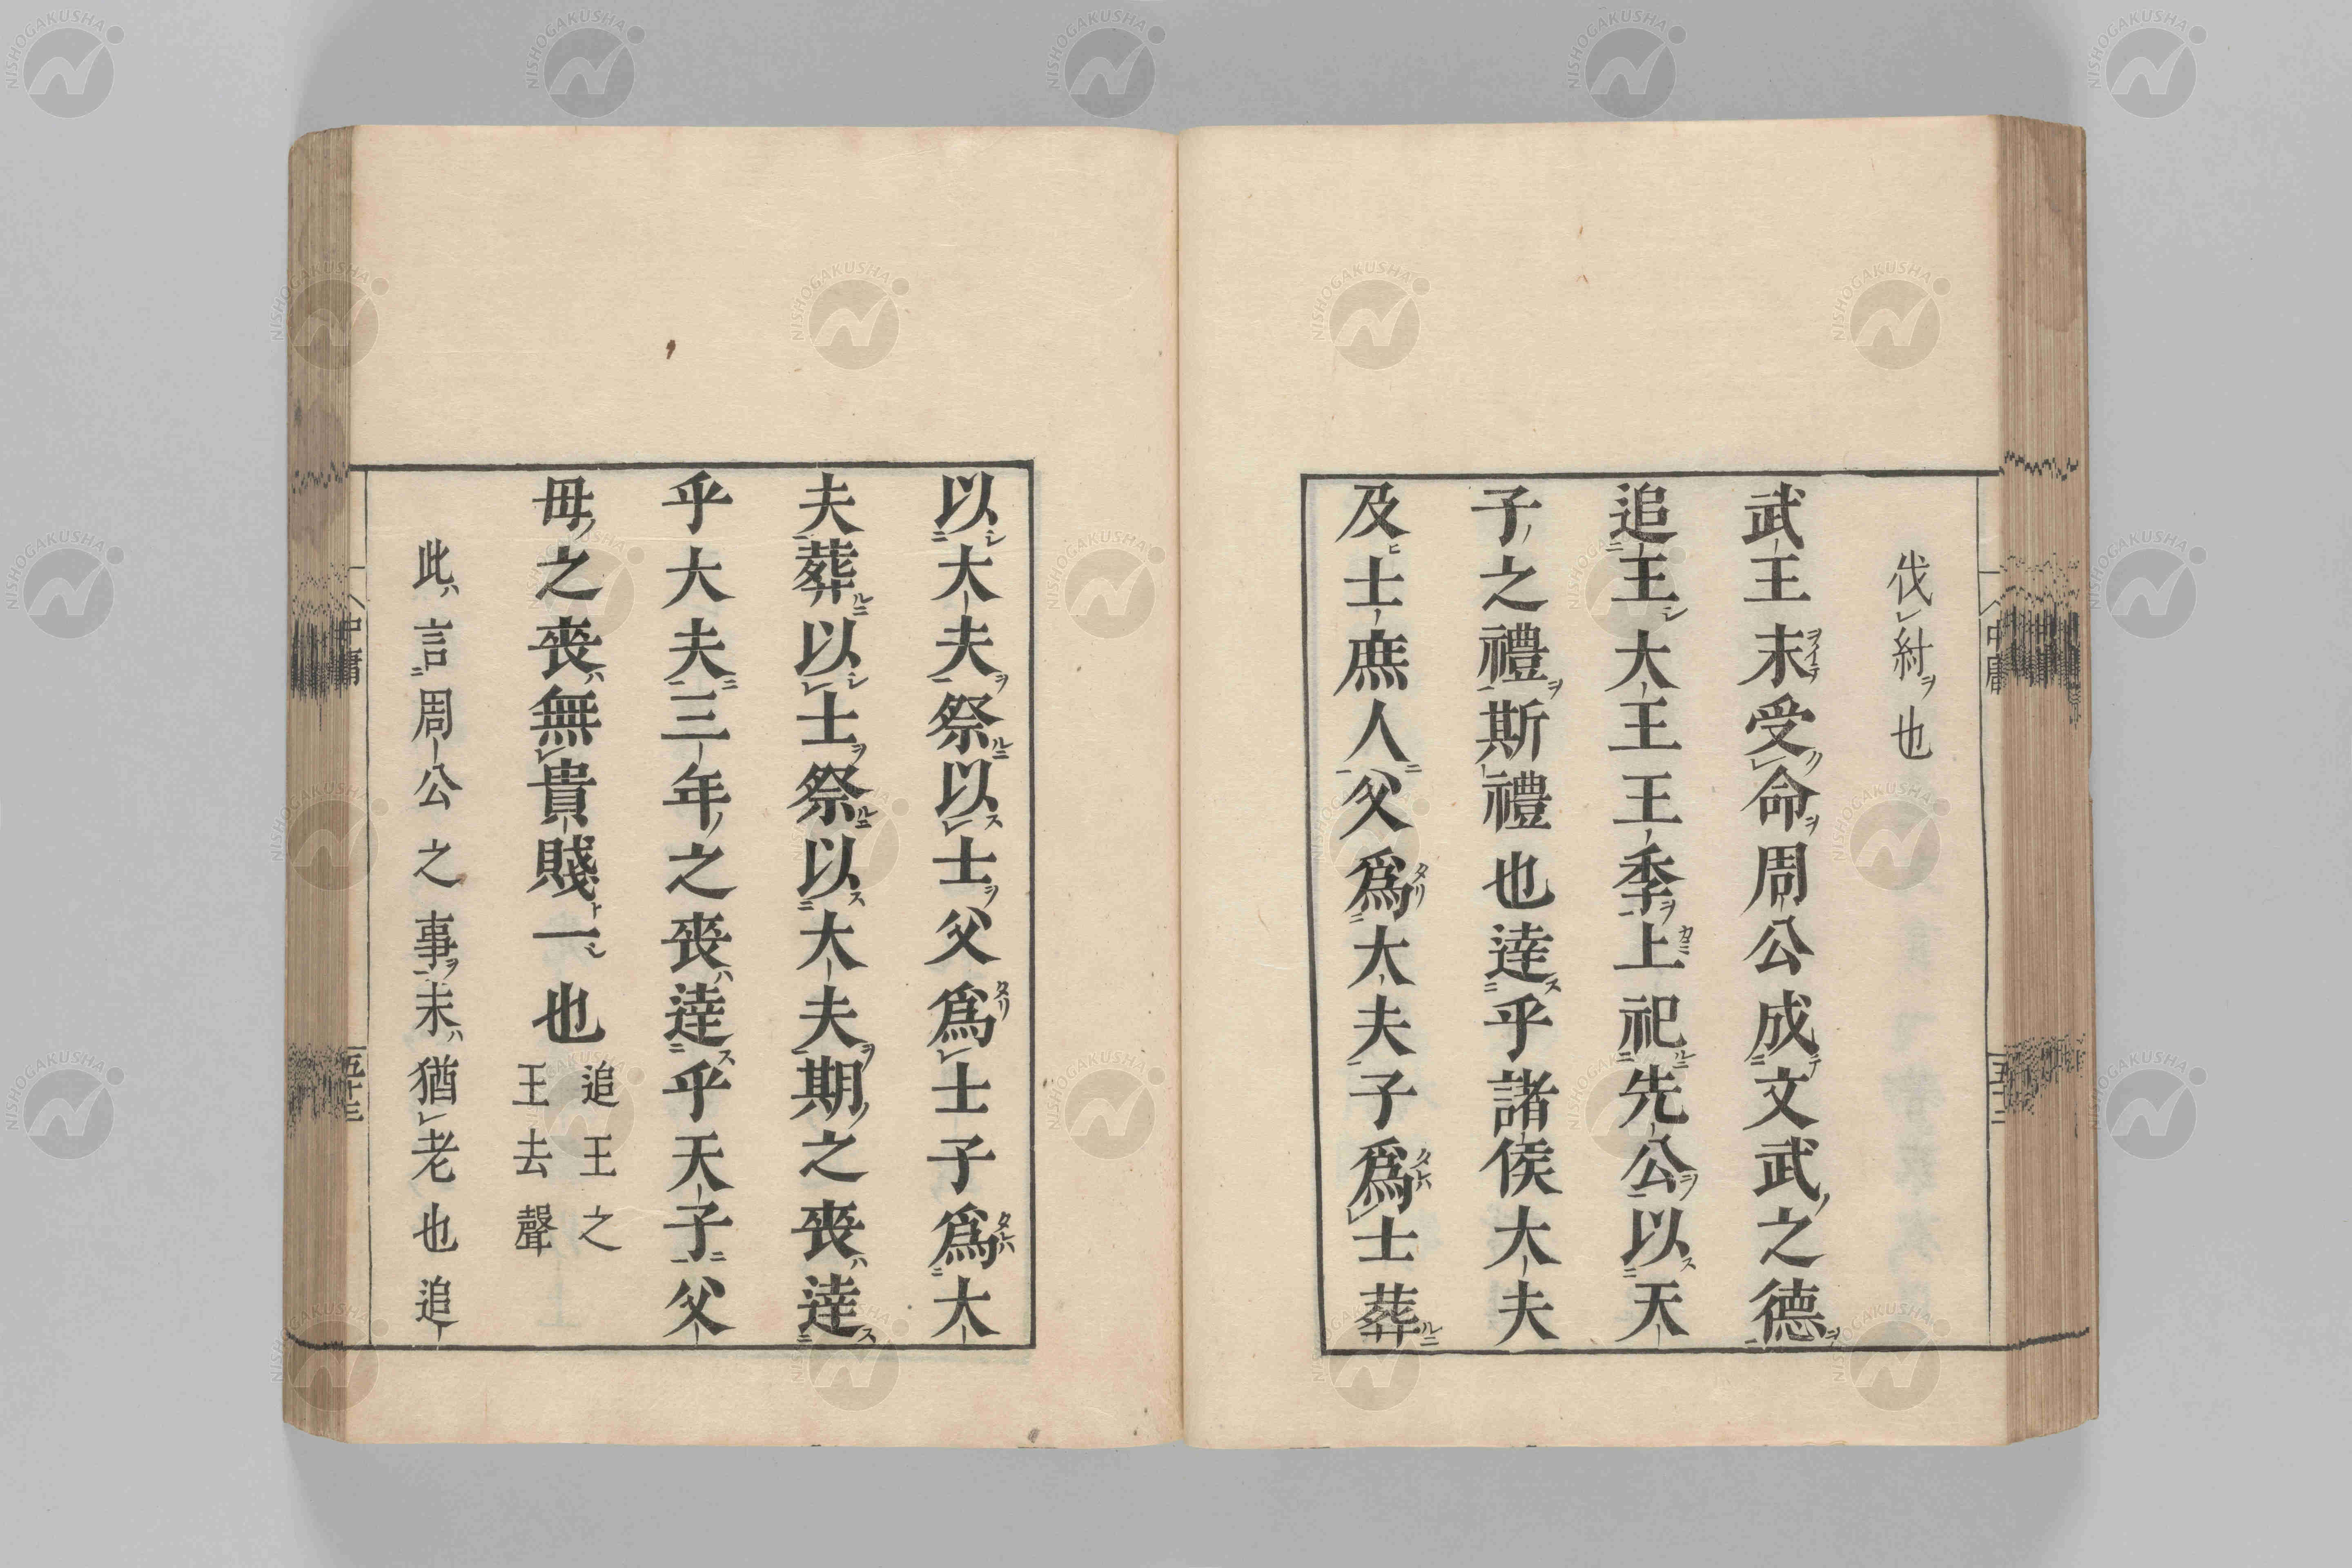 伐紂也
武王末受命周公成文武之德
追王大王王季上祀先公以天
子之禮斯禮也達乎諸侯大夫
及士庶人父爲大夫子爲士葬
以大夫祭以士父爲士子爲大
夫葬以士祭以大夫期之喪達
乎大夫三年之喪達乎天子父
母之喪無貴賤一也追王之
王去聲
此言周公之事末猶老也追
中庸
五十三
NISHOGAKUSHA